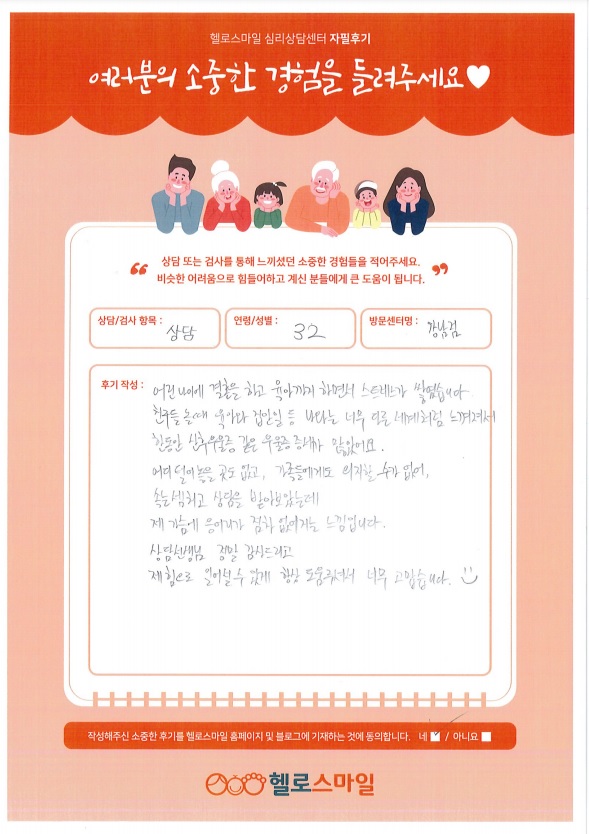 헬로스마일 심리상담센터 자필후기
여러분의 소중한 경험을 들려주세요
상담 또는 검사를 통해 느끼셨던 소중한 경험들을 적어주세요.
비슷한 어려움으로 힘들어하고 계신 분들에게 큰 도움이 됩니다.
상담/검사 항목 : 상담
연령/성별 : 32
방문센터명 : 강남점
후기 작성 : 어린 나이에 결혼을 하고 육아까지 하면서 스트레스가 쌓였습니다
친구들 놀때 육아와 집안일 등 나와는 너무 다른 세계처럼 느껴져서
한동안 산후우울증 같은 우울증 증세가 왔었어요.
어디 털어놓을 곳도 없고, 가족들에게도 의지할 수가 없어,
속는셈치고 상담을 받아보았는데
제 가슴에 응어리가 점차 없어지는 느낌입니다.
상담선생님 정말 감사드리고
제 힘으로 일어설 수 있게 항상 도움주셔서 너무 고맙습니다.
작성해주신 소중한 후기를 헬로스마일 홈페이지 및 블로그에 기재하는 것에 동의합니다. 네 / 아니요
헬로스마일